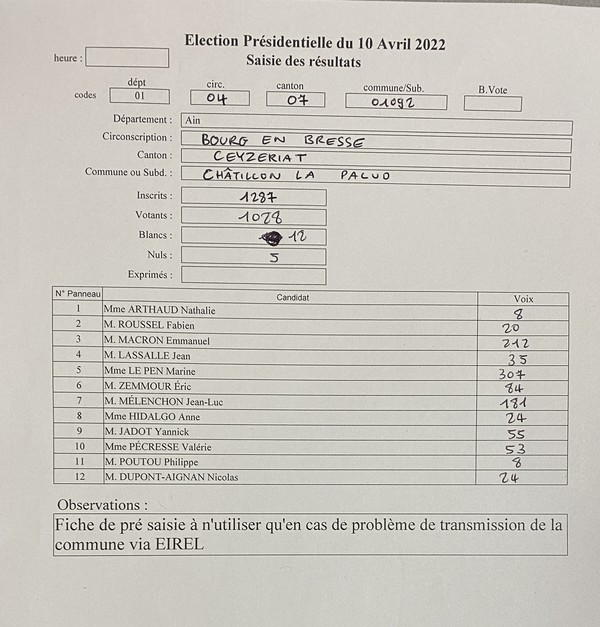 Election Présidentielle du 10 Avril 2022
Saisie des résultats
heure :
codes dépt 01 circ. 04 canton 07 commune/Sub. 01092 B.Vote
Département : Ain
Circonscription : BOURG EN BRESSE
Canton : CEYZERIAT
Commune ou Subd. : CHÂTILLON LA PALUD
Inscrits : 1287
Votants : 1028
Blancs : 12
Nuls : 5
Exprimés :
N° Panneau Candidat Voix
1 Mme ARTHAUD Nathalie 8
2 M. ROUSSEL Fabien 20
3 M. MACRON Emmanuel 212
4 M. LASSALLE Jean 35
5 Mme LE PEN Marine 307
6 M. ZEMMOUR Éric 84
7 M. MÉLENCHON Jean-Luc 181
8 Mme HIDALGO Anne 24
9 M. JADOT Yannick 55
10 Mme PÉCRESSE Valérie 53
11 M. POUTOU Philippe 8
12 M. DUPONT-AIGNAN Nicolas 24
Observations :
Fiche de pré saisie à n'utiliser qu'en cas de problème de transmission de la
commune via EIREL